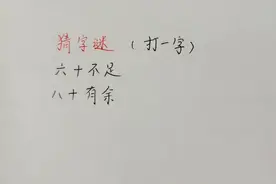 猜字谜（打一字）
六十不足
八十有余